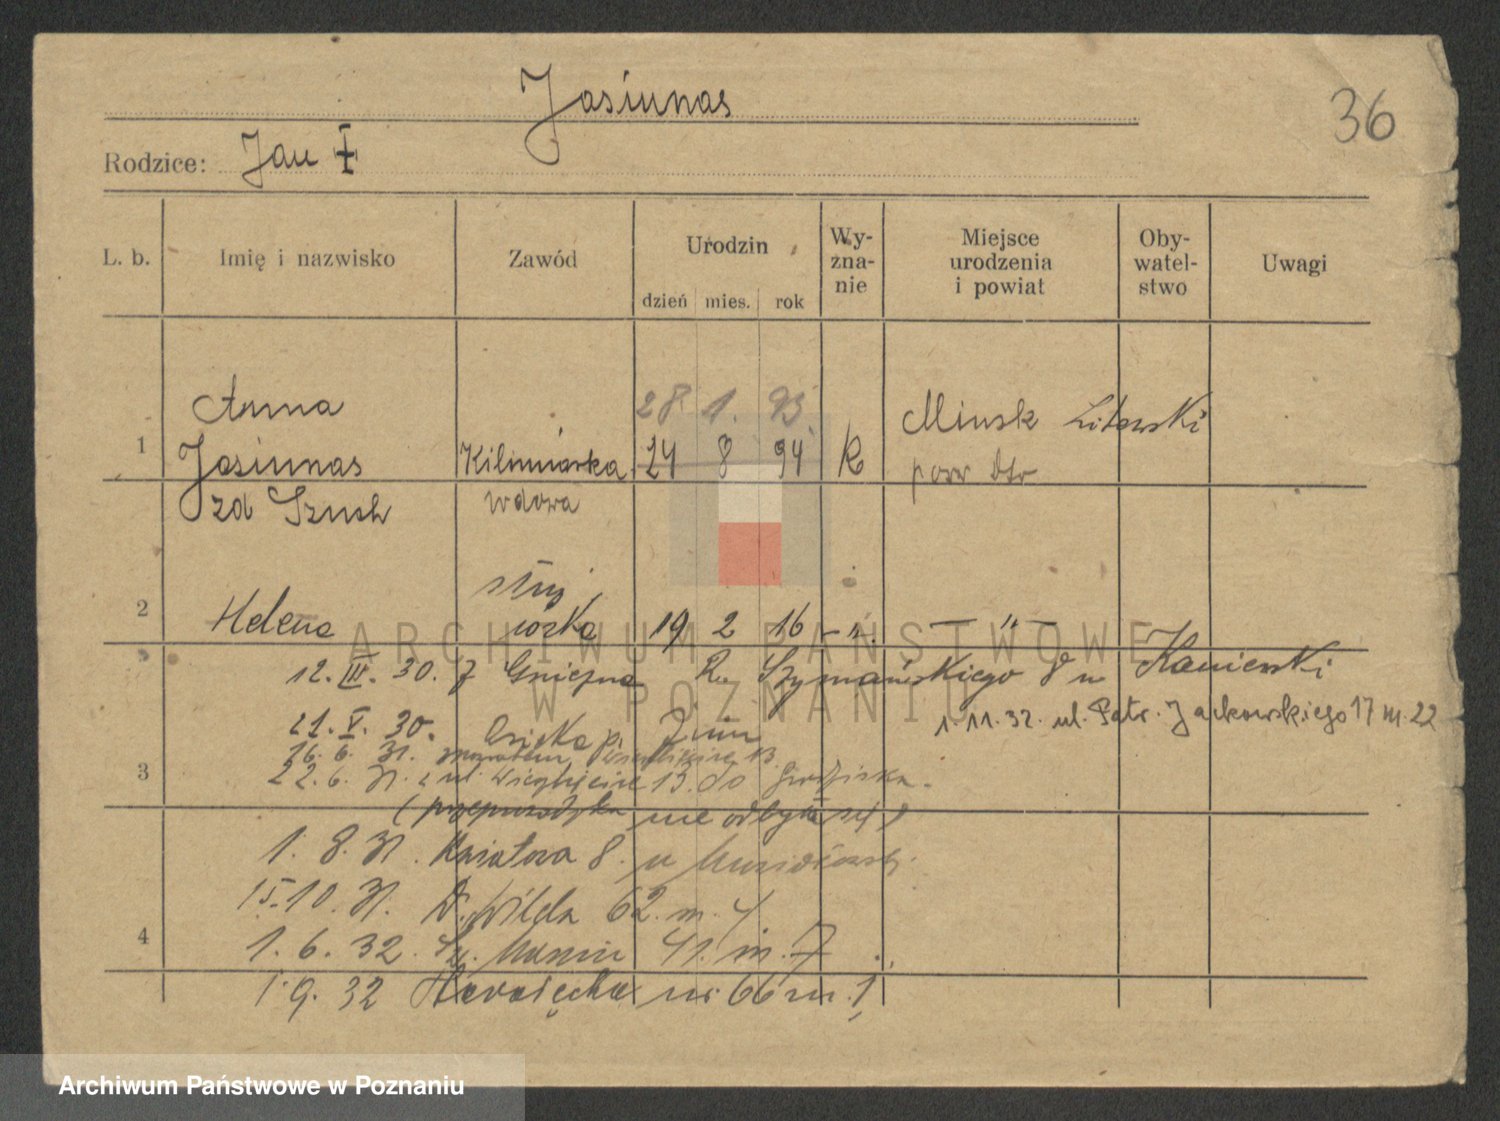 Jasiunas
36
Rodzice: Jan ‡
L. b. Imię i nazwisko Zawód Urodzin dzień mies. rok Wy-zna-nie Miejsce urodzenia i powiat Oby-watel-stwo Uwagi
28. 1. 93.
Anna Minsk Litewski
1 Jasiunas Kilimiarka 24 8 94 k
zd Szush wdowa
2 Helena 19 2 16 -„- -„-
12. III. 30. z Gniezna Szymańskiego 8 u Kaniewski
1.11.32. ul. Patr. Jackowskiego 17 m. 22
21. V. 30.
16. 6. 31.
3 22. 6. 31. z ul. 13 do Grodziska.
(przeprowadzka nie odbyła się)
1. 8. 31. Kwiatowa 8. u
15.10.31. D. Wilda 62. m. 4
4 1. 6. 32. 41. m. 7
1.9.32 nr. 66 m. 1,
ARCHIWUM PAŃSTWOWE
W POZNANIU
Archiwum Państwowe w Poznaniu